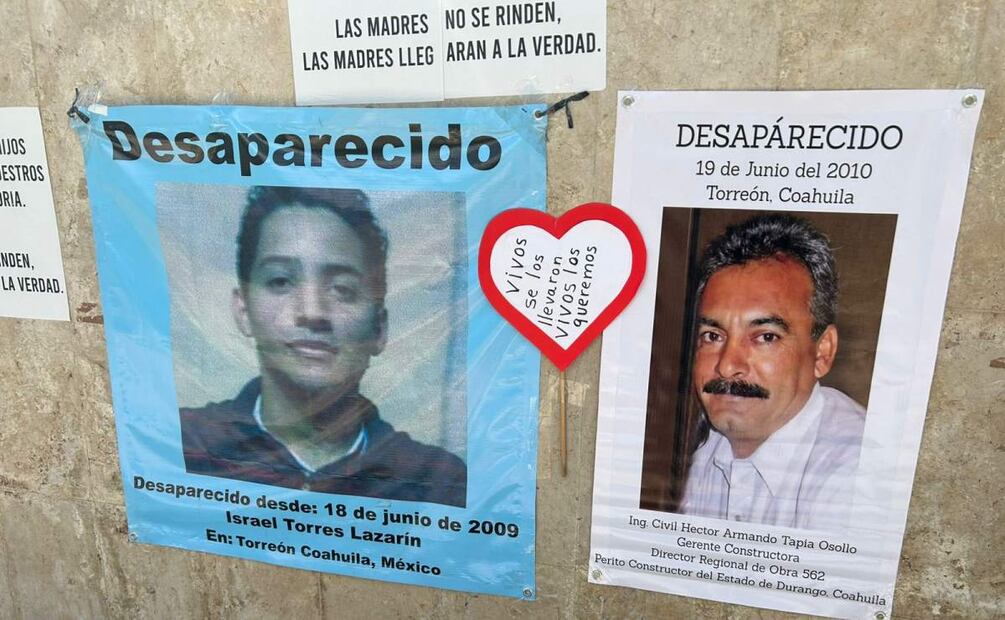 LAS MADRES NO SE RINDEN,
LAS MADRES LLEG ARAN A LA VERDAD.
IJOS
ESTROS
RIA.
INDEN,
LA VERDAD.
Desaparecido
Desaparecido desde: 18 de junio de 2009
Israel Torres Lazarín
En: Torreón Coahuila, México
Vivos
se los
llevaron
vivos los
queremos
DESAPÁRECIDO
19 de Junio del 2010
Torreón, Coahuila
Ing. Civil Hector Armando Tapia Osollo
Gerente Constructora
Director Regional de Obra 562
Perito Constructor del Estado de Durango, Coahuila